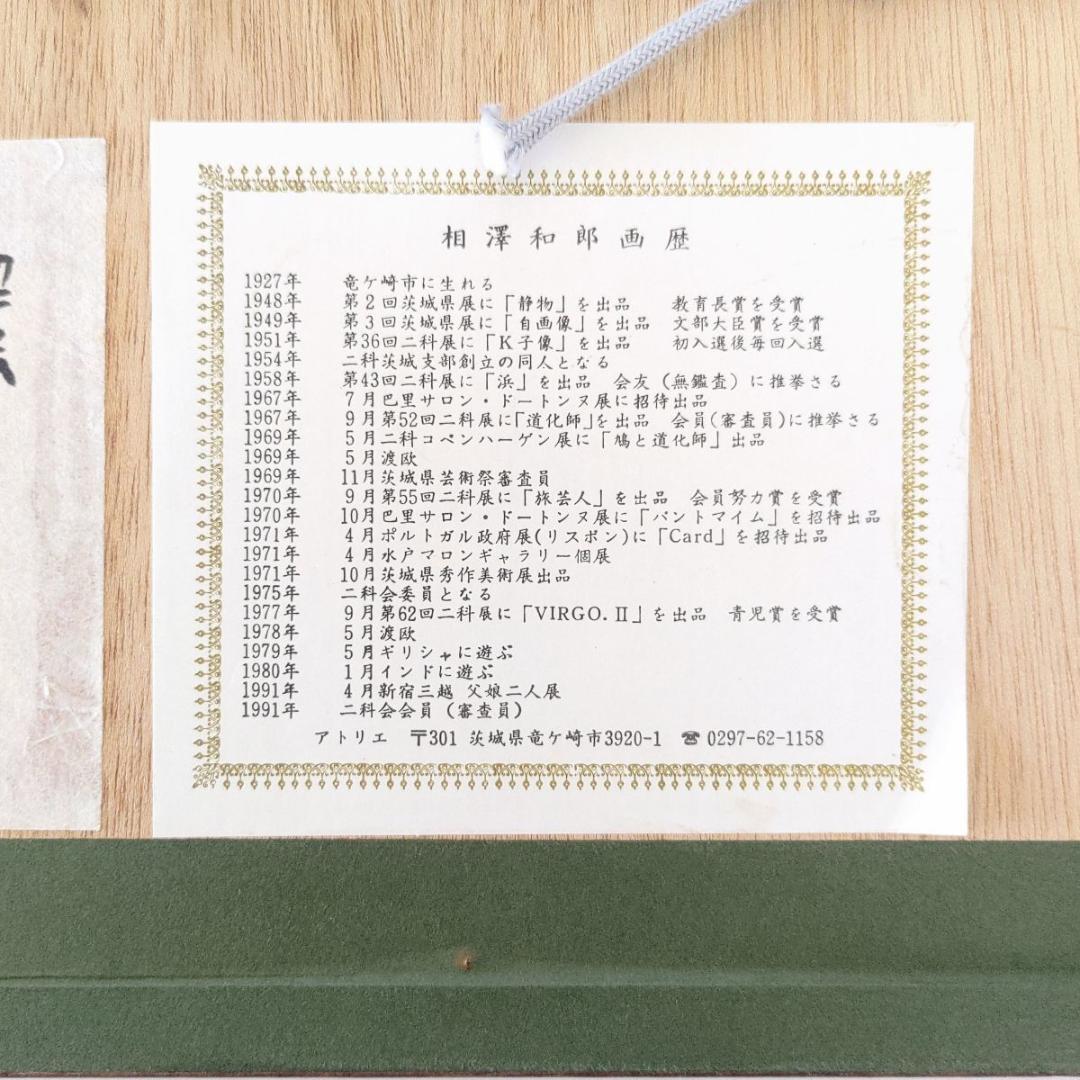 相澤和郎画歴
1927年 竜ケ崎市に生れる
1948年 第2回茨城県展に「静物」を出品 教育長賞を受賞
1949年 第3回茨城県展に「自画像」を出品 文部大臣賞を受賞
1951年 第36回二科展に「K子像」を出品 初入選後毎回入選
1954年 二科茨城支部創立の同人となる
1958年 第43回二科展に「浜」を出品 会友(無鑑査)に推挙さる
1967年 7月巴里サロン・ドートンヌ展に招待出品
1967年 9月第52回二科展に「道化師」を出品 会員(審査員)に推挙さる
1969年 5月二科コペンハーゲン展に「鳩と道化師」出品
1969年 5月渡欧
1969年 11月茨城県芸術祭審査員
1970年 9月第55回二科展に「旅芸人」を出品 会員努力賞を受賞
1970年 10月巴里サロン・ドートンヌ展に「パントマイム」を招待出品
1971年 4月ポルトガル政府展(リスボン)に「Card」を招待出品
1971年 4月水戸マロンギャラリー個展
1971年 10月茨城県秀作美術展出品
1975年 二科会委員となる
1977年 9月第62回二科展に「VIRGO.Ⅱ」を出品 青児賞を受賞
1978年 5月渡欧
1979年 5月ギリシャに遊ぶ
1980年 1月インドに遊ぶ
1991年 4月新宿三越 父娘二人展
1991年 二科会会員(審査員)
アトリエ 〒301 茨城県竜ケ崎市3920-1 ☎ 0297-62-1158